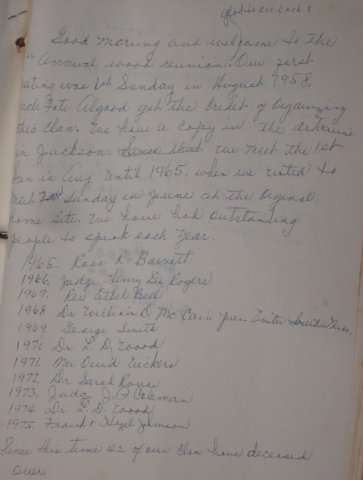 glad to see each &
Good morning and welcome to the
th Annual wood reunion. Our first
eeting was 1th Sunday in August 1958.
ncle Fate Algood got the Credit of Organizing
this Clan. We have a copy in the
in Jackson. Since that We meet the 1st
in Aug until 1965. when we voted to
meet Sunday in June at the Orginal
home site. We have had outstanding
people to speak each year.
1965. Ross R. Barnett
1966. Judge Henry Lee Rogers
1967. Rev Ethel Bell
1968 Dr William D. Mc Cain South Miss.
1969. George Smith
1970 Dr. L. D. Wood
1971. Mr Ovid Vickers
1972. Dr Sarah Rouse
1973. Judge J. P. Coleman
1974. Dr L. D. Wood
1975 Frank & Hazel Johnson
Since this time 42 of our Clan have deceased
Over.